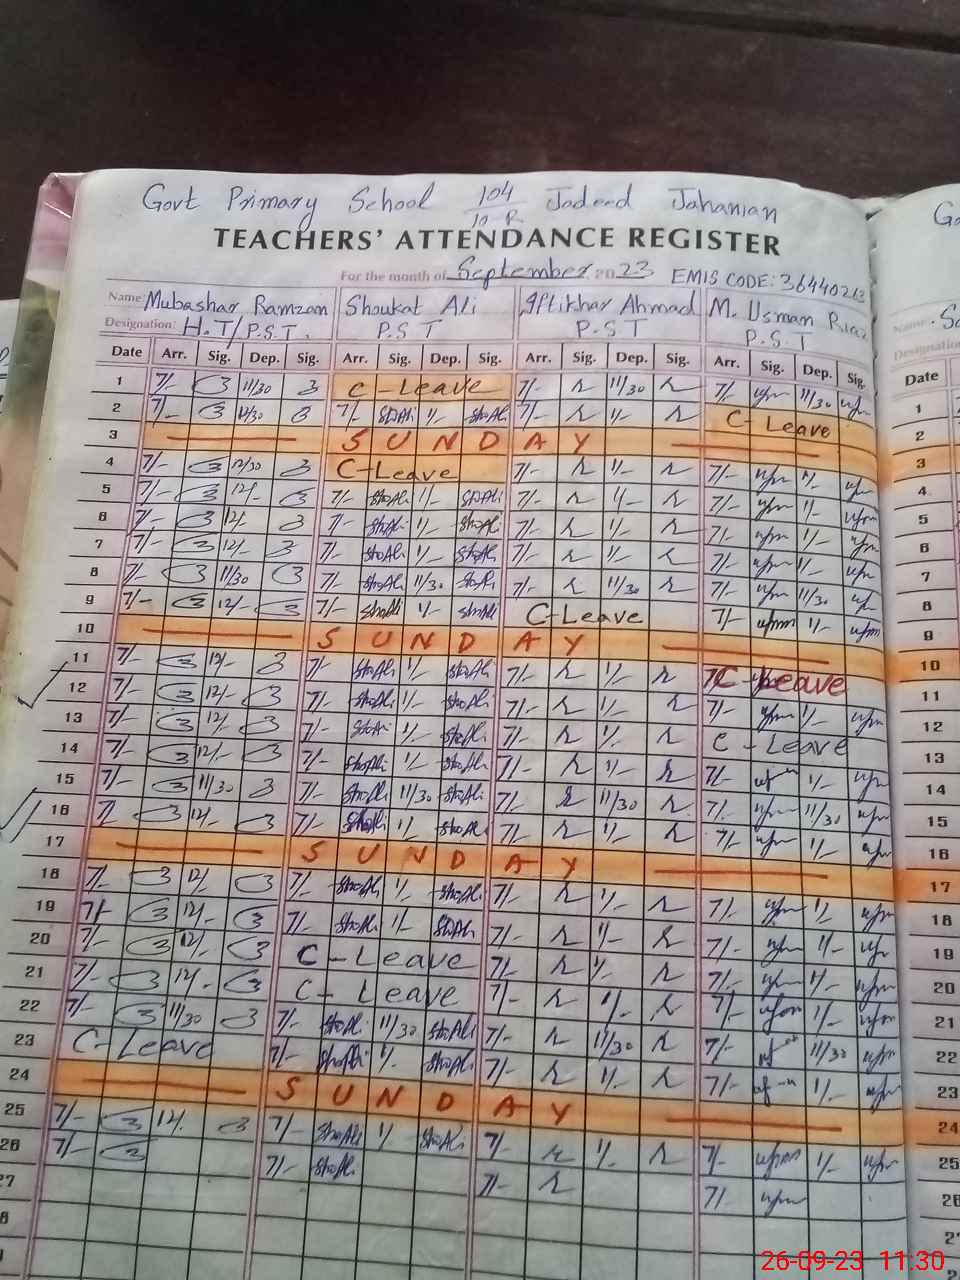 Govt Primary School 104/10-R Jadeed Jahanian
TEACHERS' ATTENDANCE REGISTER
For the month of September 2023 EMIS CODE: 36440263
Name: Mubashar Ramzan Shoukat Ali Iftikhar Ahmad M. Usman Riaz
Designation: H.T/P.S.T. P.S T P.S T P.S.T
Date Arr. Sig. Dep. Sig. Arr. Sig. Dep. Sig. Arr. Sig. Dep. Sig. Arr. Sig. Dep. Sig.
1 7/- 11/30 C-Leave 7/- 11/30 7/- 11/30
2 7/- 12/30 7/- ShoAli 1/- ShoAli 7/- 1/- C-Leave
3 SUNDAY
4 7/- 12/30 C-Leave 7/- 1/- 7/- 1/-
5 7/- 12/- 7/- ShoAli 1/- ShoAli 7/- 1/- 7/- 1/-
6 7/- 12/- 7/- ShoAli 1/- ShoAli 7/- 1/- 7/- 1/-
7 7/- 12/- 7/- ShoAli 1/- ShoAli 7/- 1/- 7/- 1/-
8 7/- 11/30 7/- ShoAli 11/30 ShoAli 7/- 11/30 7/- 11/30
9 7/- 12/- 7/- ShoAli 1/- ShoAli C-Leave 7/- 1/-
10 SUNDAY
11 7/- 12/- 7/- ShoAli 1/- ShoAli 7/- 1/- C-Leave
12 7/- 12/- 7/- ShoAli 1/- ShoAli 7/- 1/- 7/- 1/-
13 7/- 12/- 7/- ShoAli 1/- ShoAli 7/- 1/- C-Leave
14 7/- 12/- 7/- ShoAli 1/- ShoAli 7/- 1/- 7/- 1/-
15 7/- 11/30 7/- ShoAli 11/30 ShoAli 7/- 11/30 7/- 11/30
16 7/- 12/- 7/- ShoAli 1/- ShoAli 7/- 1/- 7/- 1/-
17 SUNDAY
18 7/- 12/- 7/- ShoAli 1/- ShoAli 7/- 1/- 7/- 1/-
19 7/- 12/- 7/- ShoAli 1/- ShoAli 7/- 1/- 7/- 1/-
20 7/- 12/- C-Leave 7/- 1/- 7/- 1/-
21 7/- 12/- C-Leave 7/- 1/- 7/- 1/-
22 7/- 11/30 7/- ShoAli 11/30 ShoAli 7/- 11/30 7/- 11/30
23 C-Leave 7/- ShoAli 1/- ShoAli 7/- 1/- 7/- 1/-
24 SUNDAY
25 7/- 12/- 7/- ShoAli 1/- ShoAli 7/- 1/- 7/- 1/-
26 7/- 7/- ShoAli 7/- 7/-
27
Name:
Designation
Date
1
2
3
4
5
6
7
8
9
10
11
12
13
14
15
16
17
18
19
20
21
22
23
24
25
26
26-09-23 11:30